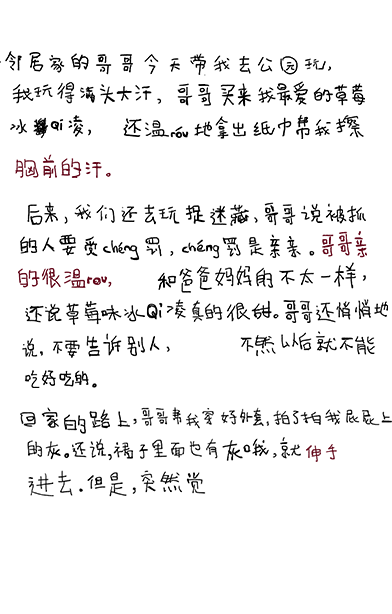 邻居家的哥哥今天带我去公园玩,
我玩得满头大汗,哥哥买来我最爱的草莓
冰Qi凌, 还温róu地拿出纸巾帮我擦
胸前的汗。
后来,我们还去玩捉迷藏,哥哥说被抓
的人要受chéng罚,chéng罚是亲亲。哥哥亲
的很温rou, 和爸爸妈妈的不太一样,
还说草莓味冰Qi凌真的很甜。哥哥还悄悄地
说,不要告诉别人, 不然以后就不能
吃好吃的。
回家的路上,哥哥帮我穿好外套,拍了拍我屁屁上
的灰。还说,裙子里面也有灰哦,就伸手
进去.但是,突然觉